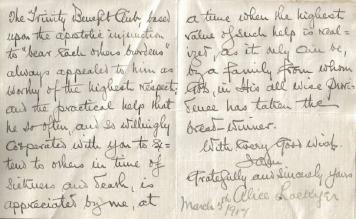 The Trinity Benefit Club, based
upon the apostolic injunction
to "bear each others burdens"
always appealed to him as
worthy of the highest respect,
and the practical help that
he so often, and so willingly
cooperated with you to ex-
tend to others in time of
sickness and death, is
appreciated by me, at
a time when the highest
value of such help is real-
ized, as it only can be,
by a family from whom
God, in His all wise Provi-
dence has taken the
bread-winner.
With every good wish.
I am
Gratefully and sincerely yours
Alice
March 3rd 1917